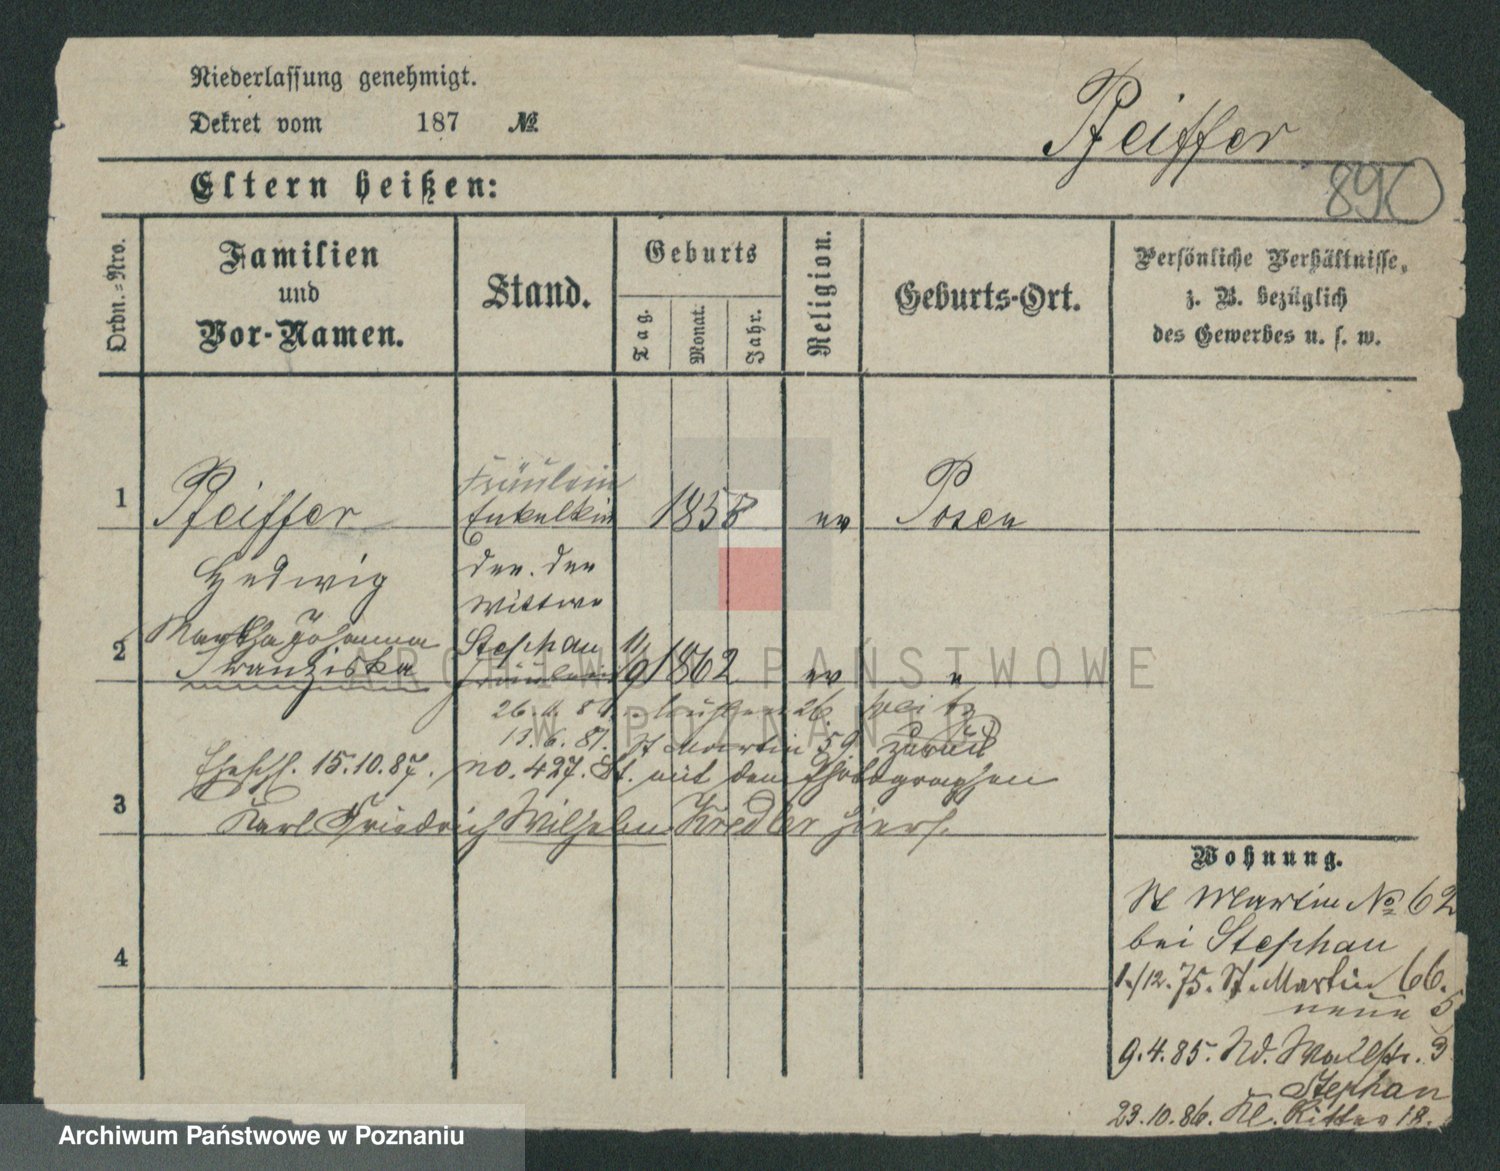 Niederlassung genehmigt.
Dekret vom 187 №
Pfeiffer
890
Eltern heißen:
Ordn.=Nro.
Familien
und
Vor-Namen.
Stand.
Geburts
Tag.
Monat.
Jahr.
Religion.
Geburts-Ort.
Persönliche Verhältnisse,
z. B. bezüglich
des Gewerbes u. s. w.
1 Pfeiffer Fräulein Enkelkin 1858 ev Posen
Hedwig der. der
Wittwe
2 Martha Johanna Stephan 11/9 1862 ev "
Franziska Fräulein
13.6.87. St Martin 59 zurück
Ehesch. 15.10.87. no. 427. St. mit dem Photographen
3 Karl Friedrich Wilhelm Kredler hiers.
4
Wohnung.
St Martin № 62
bei Stephan
1./12.75. St. Martin 66.
neue 5
9.4.85. Nd. Wallstr. 3
Stephan
23.10.86. Kl. Ritter 18.
ARCHIWUM PAŃSTWOWE
W POZNANIU
Archiwum Państwowe w Poznaniu